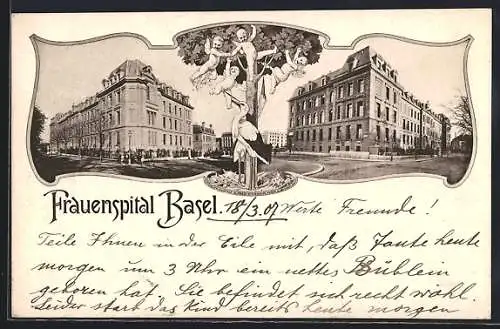 Frauenspital Basel. 18/3.07 Werte Freunde!
Teile Ihnen in der Eile mit, daß Tante heute
morgen um 3 Uhr ein nettes Büblein
geboren hat. Sie befindet sich recht wohl.
Leider starb das Kind bereits heute morgen